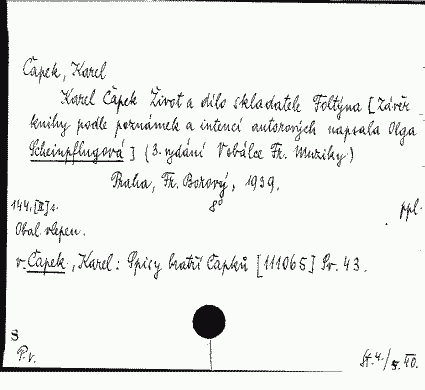 Čapek, Karel
Karel Čapek Život a dílo skladatele Foltýna [Závěr
knihy podle poznámek a intencí autorových napsala Olga
Scheinpflugová] (3. vydání V obálce Fr. Muziky)
Praha, Fr. Borový, 1939.
144, [II] s. 8° ppl.
Obal. vlepen.
v. Čapek, Karel: Spisy bratří Čapků [111065] Sv. 43.
S
P. v. St. 4./5. 40.